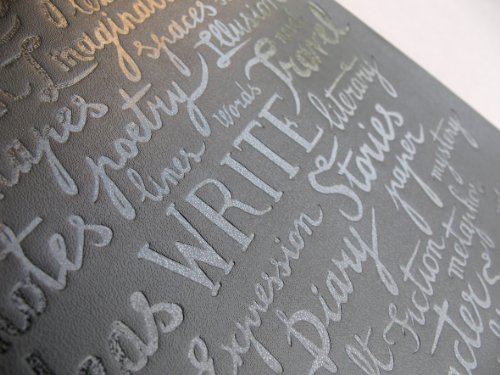 Imagination
spaces Illusion
shapes poetry words Travel and
lines WRITE literary
notes Stories
Expression Diary paper mystery
Fiction metaphor